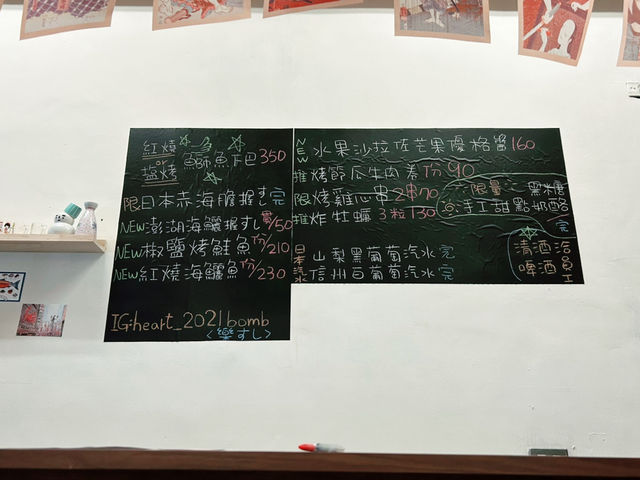 紅燒
or
塩烤
鰤魚下巴350
限日本赤海膽握すし完
NEW澎湖海鱺握すし貫/50
NEW椒鹽烤鮭魚 份/210
NEW紅燒海鱺魚 份/230
IG:heart_2021bomb
<樂すし>
NEW水果沙拉佐芒果優格醬160
推烤節瓜牛肉捲 份/90
限烤雞心串2串70
推炸牡蠣 3粒130
限量
黑糖
手工甜點 奶酪
完
日本汽水
山梨黑葡萄汽水 完
信州白葡萄汽水 完
清酒
啤酒
洽員工